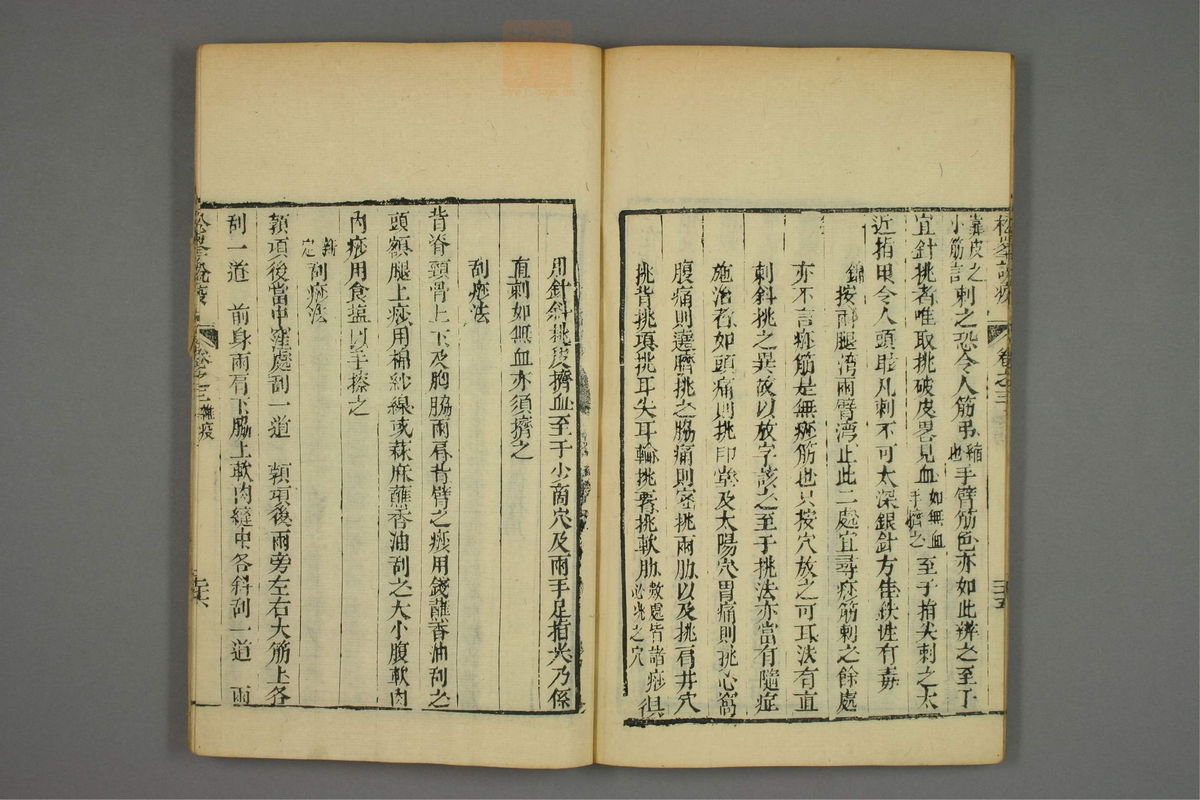 松峯說疫 卷之三 二十五
靠皮之小筋言刺之恐令人筋弔縮也手臂筋色亦如此辨之至于
宜針挑者唯取挑破皮畧見血如無血手擠之至于指尖刺之太
近指甲令人頭眩凡刺不可太深銀針方佳鉄性有毒
按兩腿湾兩臂湾止此二處宜尋痧筋刺之餘處
亦不言痧筋是無痧筋也只按穴放之可耳法有直
刺斜挑之異故以放字該之至于挑法亦當有隨症
施治者如頭痛則挑印堂及太陽穴胃痛則挑心窩
腹痛則遶臍挑之脇痛則密挑兩肋以及挑肩井穴
挑背挑項挑耳尖耳輪挑唇挑軟肋數處皆諸痧必挑之穴俱
用針斜挑皮擠血至于少商穴及兩手足指尖乃係
直刺如無血亦須擠之
刮痧法
背脊頸骨上下及胸脇兩肩背臂之痧用錢蘸香油刮之
頭額腿上痧用棉紗線或蔴麻蘸香油刮之大小腹軟肉
內痧用食塩以手擦之
新定刮痧法
顖項後當中窪處刮一道 顖項後兩旁左右大筋上各
刮一道 前身兩肩下脇上軟肉縫中各斜刮一道 兩
松峯說疫 卷之三 雜疫 二十六